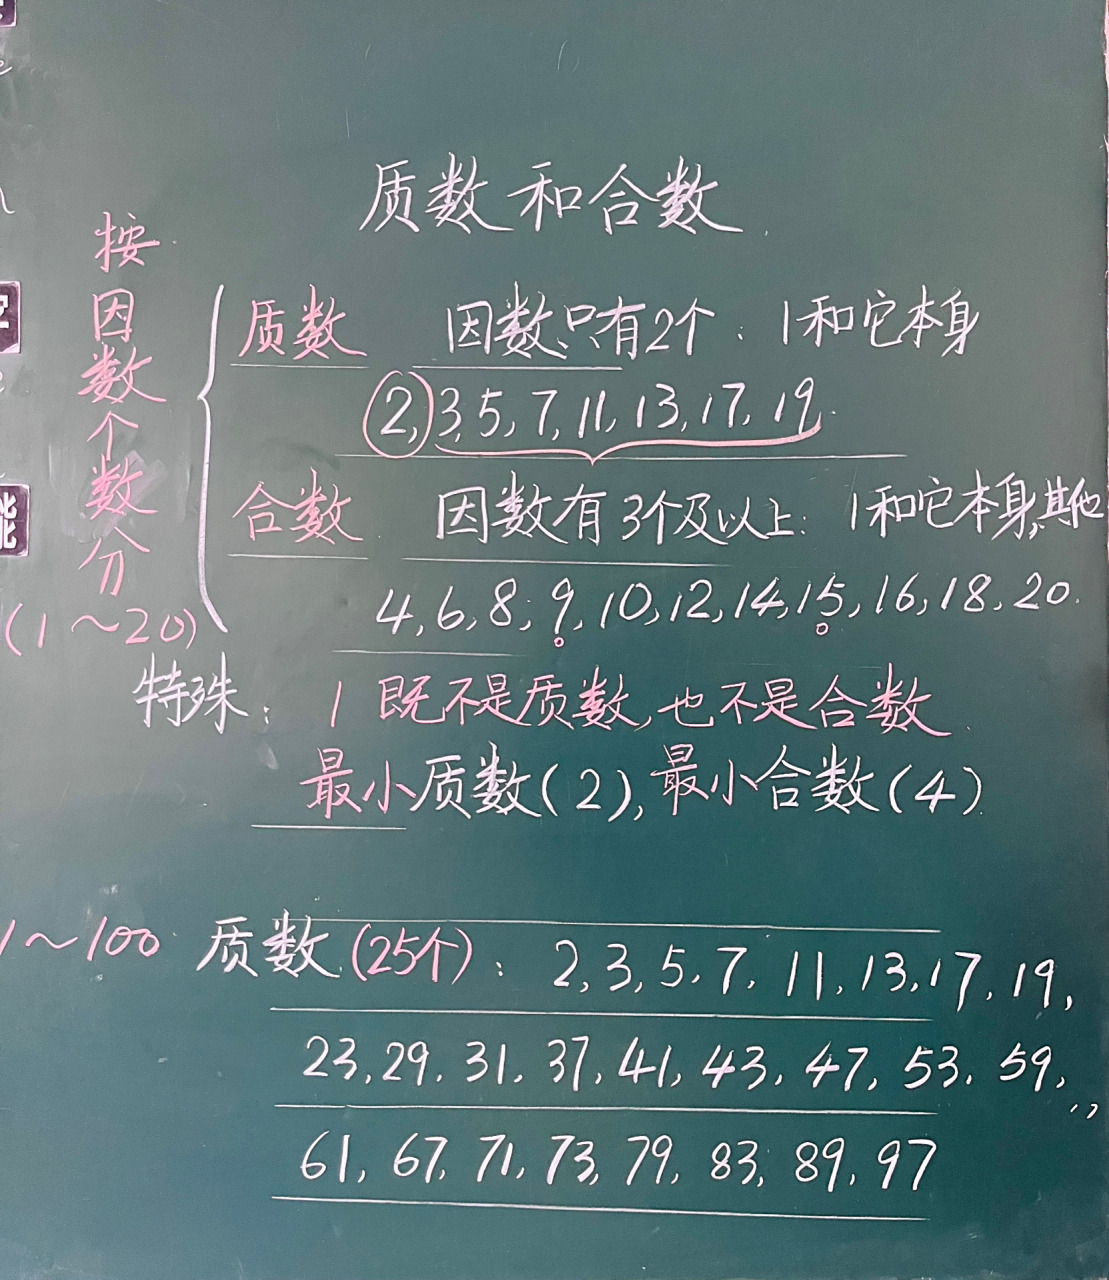 质数和合数
按因数个数分
(1～20)
质数 因数只有2个：1和它本身
2,3,5,7,11,13,17,19.
合数 因数有3个及以上：1和它本身,其他
4,6,8,9,10,12,14,15,16,18,20.
特殊：1既不是质数,也不是合数
最小质数(2),最小合数(4)
1～100 质数(25个)：2,3,5,7,11,13,17,19,
23,29,31,37,41,43,47,53,59,
61,67,71,73,79,83,89,97
能